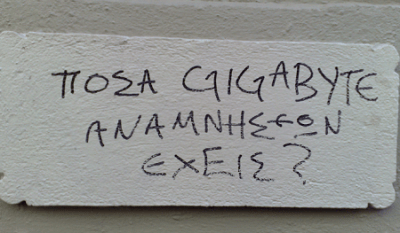 ΠΟΣΑ GIGABYTE
ΑΝΑΜΝΗΣΕΩΝ
ΕΧΕΙΣ?